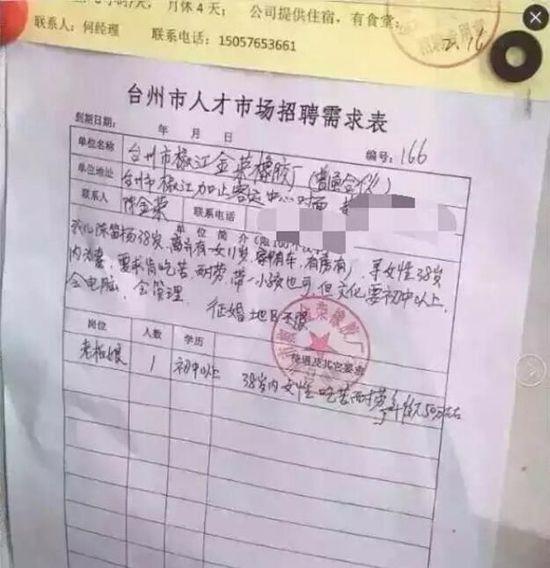 月休4天； 公司提供住宿，有食堂；
联系人：何经理 联系电话：15057653661
台州市人才市场招聘需求表
到期日期： 年 月 日 编号：166
单位名称 台州市椒江金荣橡胶厂（普通合伙）
单位地址 台州市椒江加止客运中心对面
联系人 陈金荣 联系电话
单位简介（限100个汉字）
38岁，离异有一女11岁，有车，有房，寻女性38岁
内为妻，要求肯吃苦耐劳，带一小孩也可，但文化要初中以上，
会电脑，会管理， 征婚地区不限
岗位 人数 学历 待遇及其它要求
老板娘 1 初中以上 38岁内女性吃苦耐劳年薪50万左右